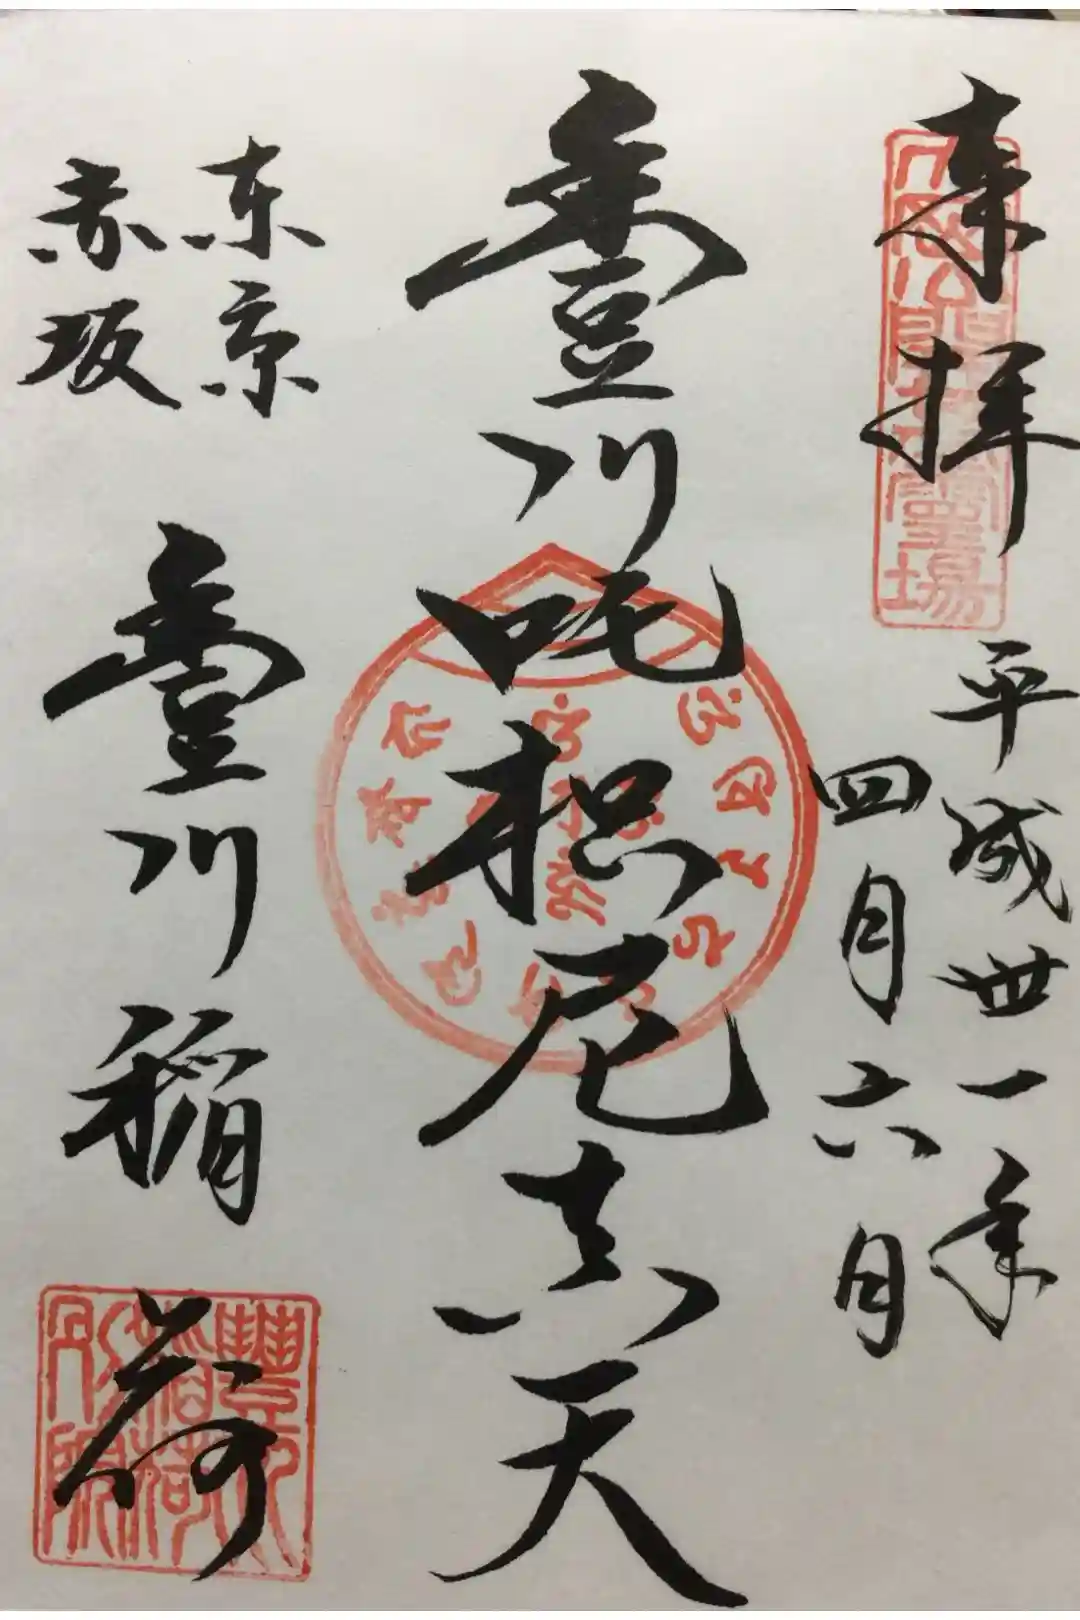 奉拝
平成卅一年
四月六日
豊川吒枳尼真天
東京
赤坂
豊川稲荷
豐川稻荷別院